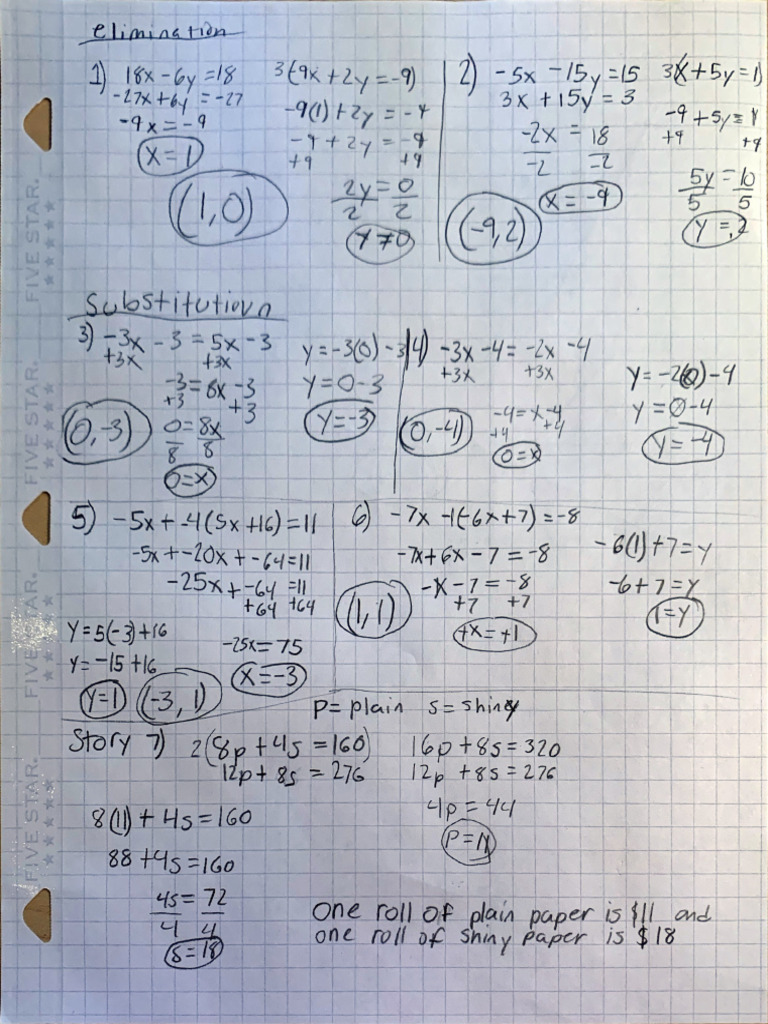 elimination
1) 18x - 6y = 18
-27x + 6y = -27
-9x = -9
x = 1
(1,0)
3(-9x + 2y = -9)
-9(1) + 2y = -9
-9 + 2y = -9
+9 +9
2y = 0
2 2
y = 0
2) -5x - 15y = 15
3x + 15y = 3
-2x = 18
-2 -2
x = -9
(-9,2)
3(x + 5y = 1)
-9 + 5y = 1
+9 +9
5y = 10
5 5
y = 2
Substitution
3) -3x - 3 = 5x - 3
+3x +3x
-3 = 8x - 3
+3 +3
0 = 8x
8 8
0 = x
(0,-3)
y = -3(0) - 3
y = 0 - 3
y = -3
4) -3x - 4 = -2x - 4
+3x +3x
-4 = x - 4
+4 +4
0 = x
(0,-4)
y = -2(0) - 4
y = 0 - 4
y = -4
5) -5x + -4(5x + 16) = 11
-5x + -20x + -64 = 11
-25x + -64 = 11
+64 +64
-25x = 75
x = -3
y = 5(-3) + 16
y = -15 + 16
y = 1
(-3, 1)
6) -7x - 1(-6x + 7) = -8
-7x + 6x - 7 = -8
-x - 7 = -8
+7 +7
+x = +1
(1,1)
-6(1) + 7 = y
-6 + 7 = y
1 = y
p = plain s = shiny
Story 7) 2(8p + 4s = 160)
12p + 8s = 276
16p + 8s = 320
12p + 8s = 276
4p = 44
p = 11
8(11) + 4s = 160
88 + 4s = 160
4s = 72
4 4
s = 18
One roll of plain paper is $11 and
one roll of shiny paper is $18
FIVE STAR.
FIVE STAR.
FIVE STAR.
FIVE STAR.